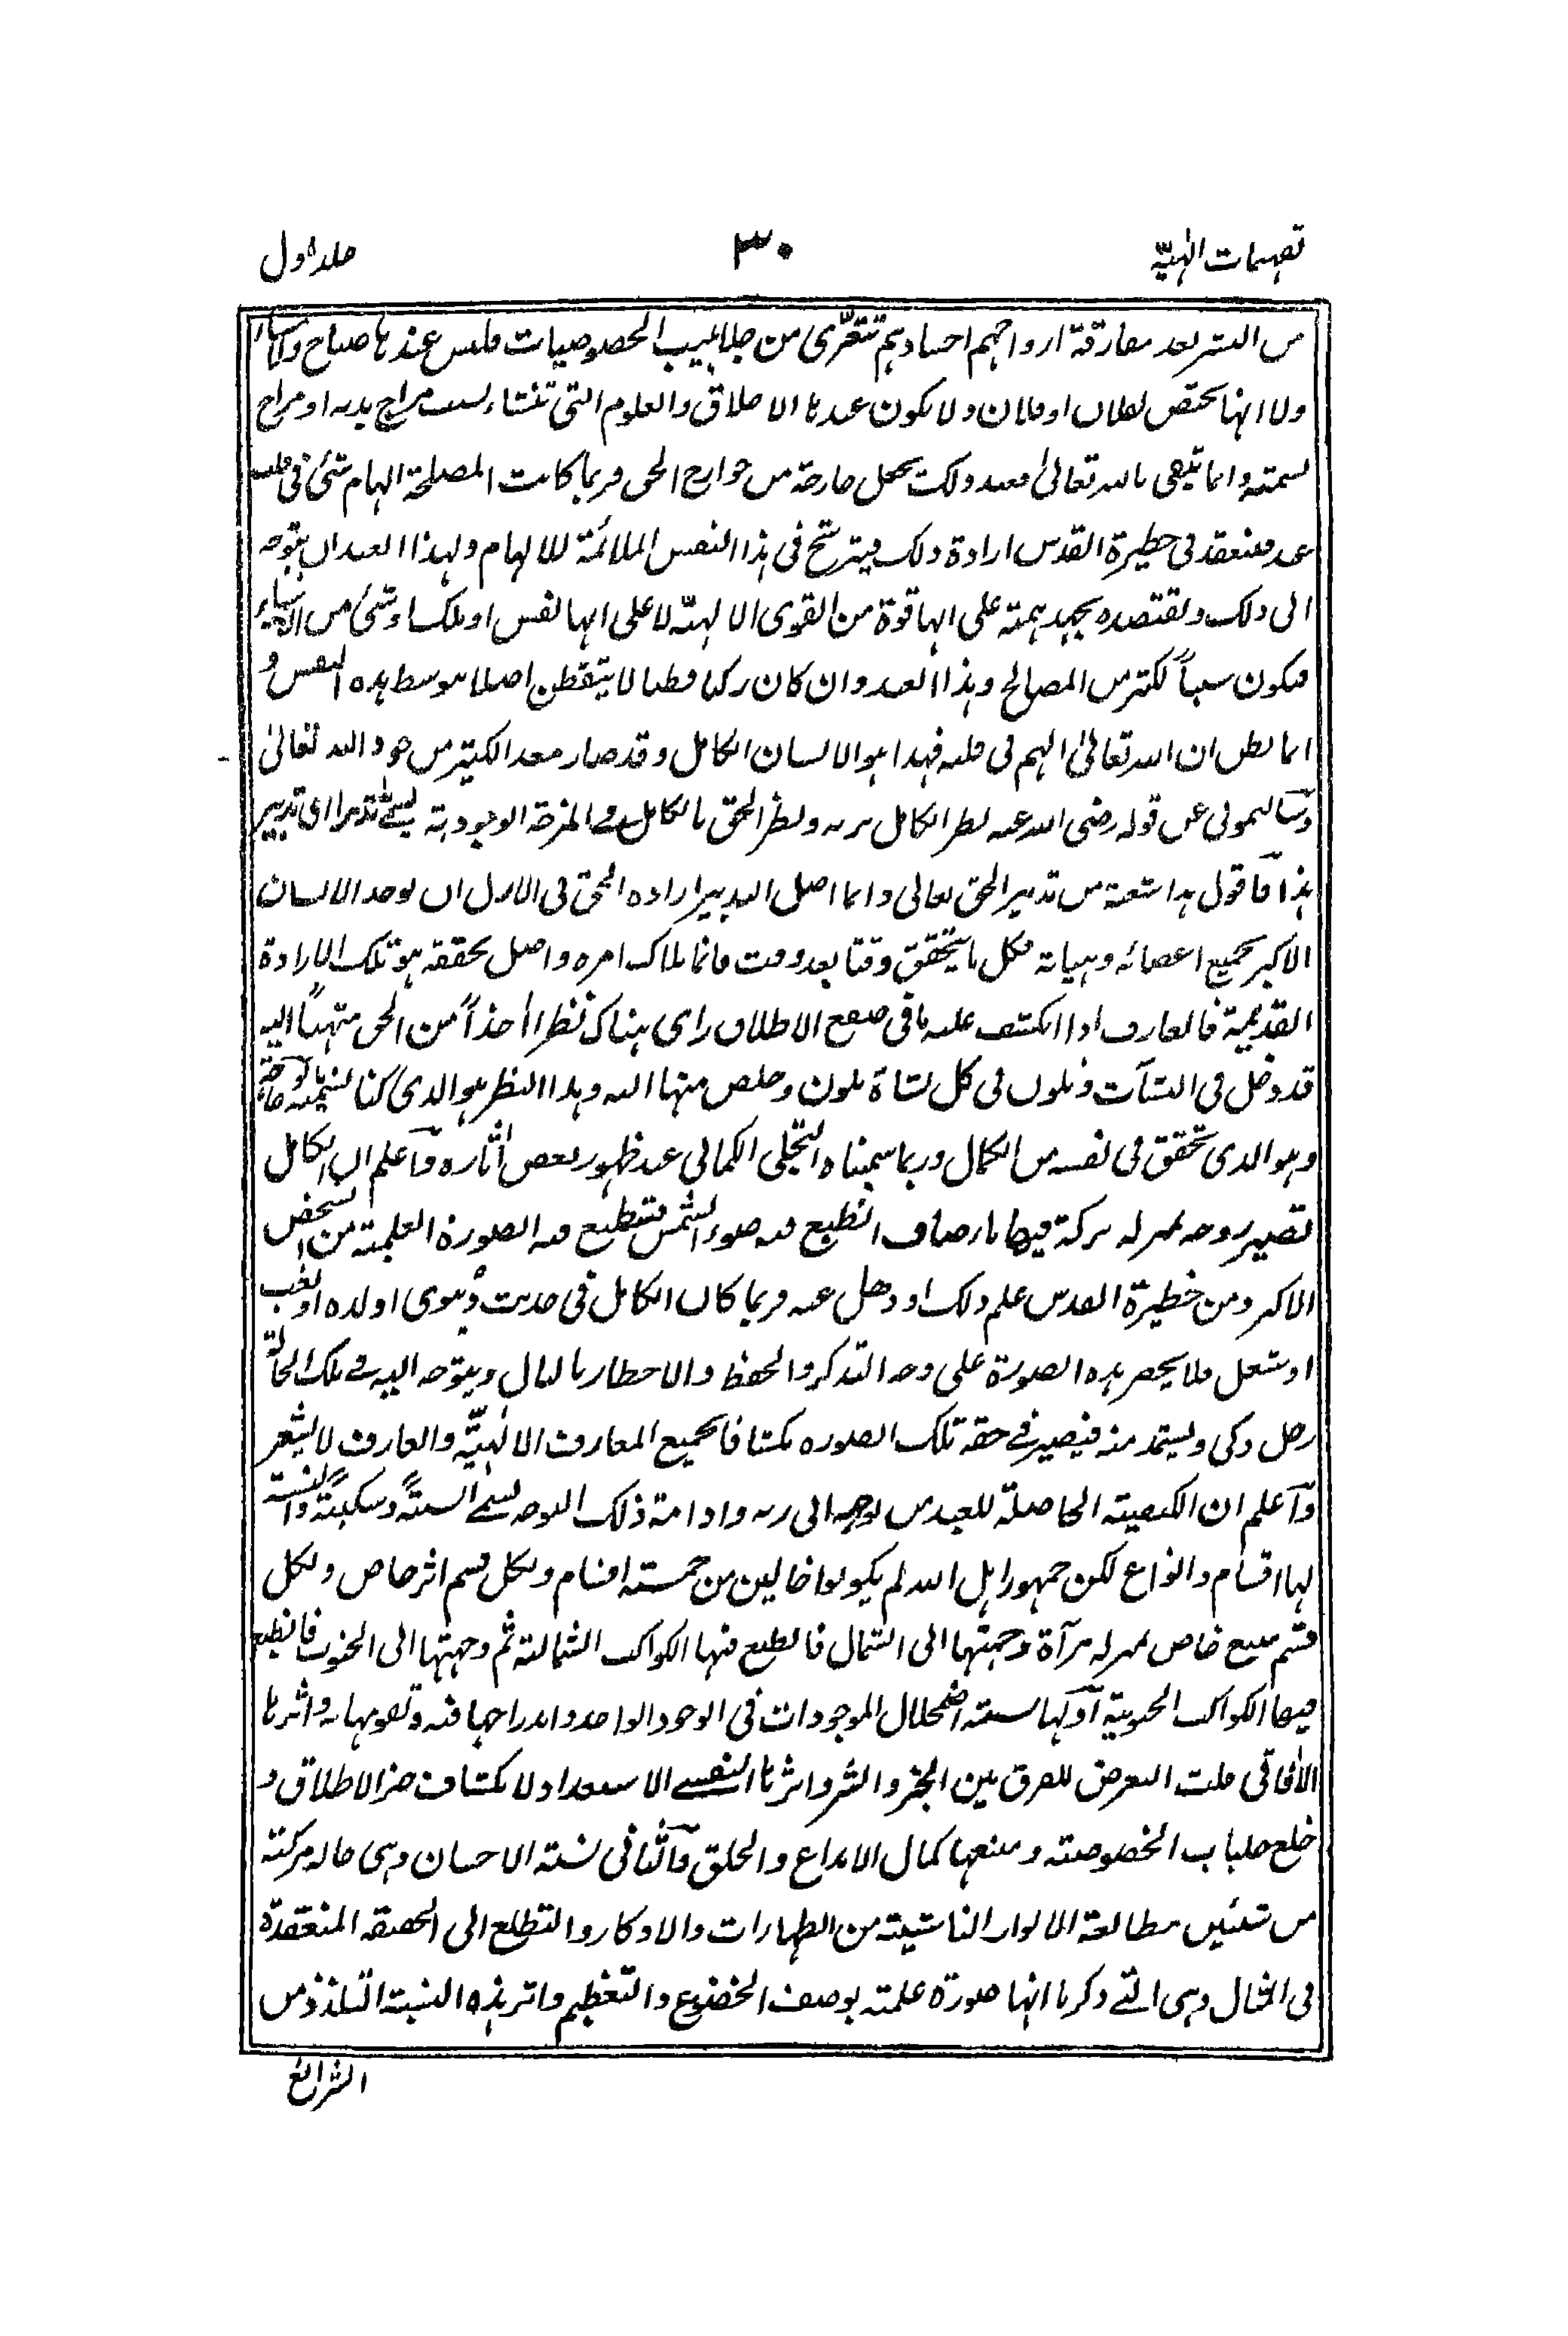 تفہیمات الٰہیّہ
۳۰
جلد اول
من البشر بعد مفارقة ارواحہم اجسادہم تتعرّی من جلابیب الخصوصیات فلیس عندہا صباح ولا مساء
ولا انہا تختص بفلان او فلان ولا یکون عندہا الاخلاق والعلوم التی تنشاء بسبب مزاج بدنہ او مزاج
نسمتہ وانما تبقی باللہ تعالیٰ فعند ذلک تجعل جارحة من جوارح الحق فربما کانت المصلحة الہام شئ فی قلب
عبد فینعقد فی حظیرة القدس ارادة ذلک فیترشح فی ہذا النفس الملائمة للالہام ولہذا العبد ان یتوجہ
الی ذلک ویقتصدہ بجہد ہمتہ علی انہا قوة من القوی الالہیّہ لا علی انہا نفس او ملک او شئ من الاشیاء
فیکون سبباً لکثیر من المصالح وہذا العبد وان کان زکیا فطنا لا یتفطن اصلا بتوسط ہذہ النفس و
انما یظن ان اللہ تعالیٰ الہم فی قلبہ فہذا ہو الانسان الکامل وقد صار معدا لکثیر من جود اللہ تعالیٰ
وسألتمونی عن قولہ رضی اللہ عنہ نظر الکامل بربہ ونظر الحق بالکامل فے المزجة الوجودیة یسمٰے تدبیرا ای تدبیر
ہذا فاقول ہذا شعبة من تدبیر الحق تعالی وانما اصل التدبیر ارادہ الحق فی الازل ان یوجد الانسان
الاکبر بجمیع اعضائہ وہیاتہ فکل ما یتحقق وقتا بعد وقت فانما ملاک امرہ واصل تحققہ ہو تلک الارادة
القدیمیة فالعارف اذا انکشف علیہ ما فی صقع الاطلاق رای ہناک نظرا اٰخذاً من الحق منتہیاً الیہ
قد دخل فی النشآت وتلون فی کل نشاة بلون وخلص منہا الیہ وہذا النظر ہو الذی کنا نسمیہ
وہو الذی تحقق فی نفسہ من الکمال وربما سمیناہ التجلی الکمالی عند ظہور بعض اٰثارہ وٓاعلم ان الکامل
تصیر روحہ بمنزلہ برکة فیہا ماء صاف انطبع فیہ ضوء الشمس فتنطبع فیہ الصورة العلمیة من الشخص
الاکبر ومن حظیرة القدس علم ذلک او ذہل عنہ وربما کان الکامل فی حدیث دنیوی او لدہ او تعب
او شغل فلا یحضر ہذہ الصورة علی وجہ التذکر والحفظ والاخطار بالبال ویتوجہ الیہ فے تلک الحالة
رجل زکی ویستمد منہ فیصیر فے حقہ تلک الصورہ مکشافا بجمیع المعارف الالٰہیّة والعارف لا یشعر
وٓاعلم ان الکیفیة الحاصلة للعبد من توجہہ الی ربہ وادامة ذلک التوجہ یسمٰے نسبةً وسکینةً والنسبة
لہا اقسام وانواع لکن جمہور اہل اللہ لم یکونوا خالین من خمسة اقسام ولکل قسم اثر خاص ولکل
قسم منبع خاص بمنزلہ مرآة وجہتہا الی الشمال فانطبع فیہا الکواکب الشمالیة ثم وجہتہا الی الجنوب فانطبع
فیہا الکواکب الجنوبیة آوّلہا نسبة اضمحلال الموجودات فی الوجود الواحد واندراجہا فیہ وتقومہا بہ واثرہا
الاٰفاقی قلت التعرض للفرق بین الخیر والشر واثرہا النفسے الاستعداد لانکشاف ہذا الاطلاق و
خلع جلباب الخصوصیة ومنبعہا کمال الابداع والخلق وٓالثانی نسبة الاحسان وہی حالہ مرکبة
من شیئین مطالعة الانوار الناشیة من الطہارات والاذکار والتطلع الی الحقیقہ المنعقدة
فی المثال وہی التے ذکرنا انہا صورة علمیة بوصف الخضوع والتعظیم واثر ہذہ النسبة التلذذ من
الشرائع